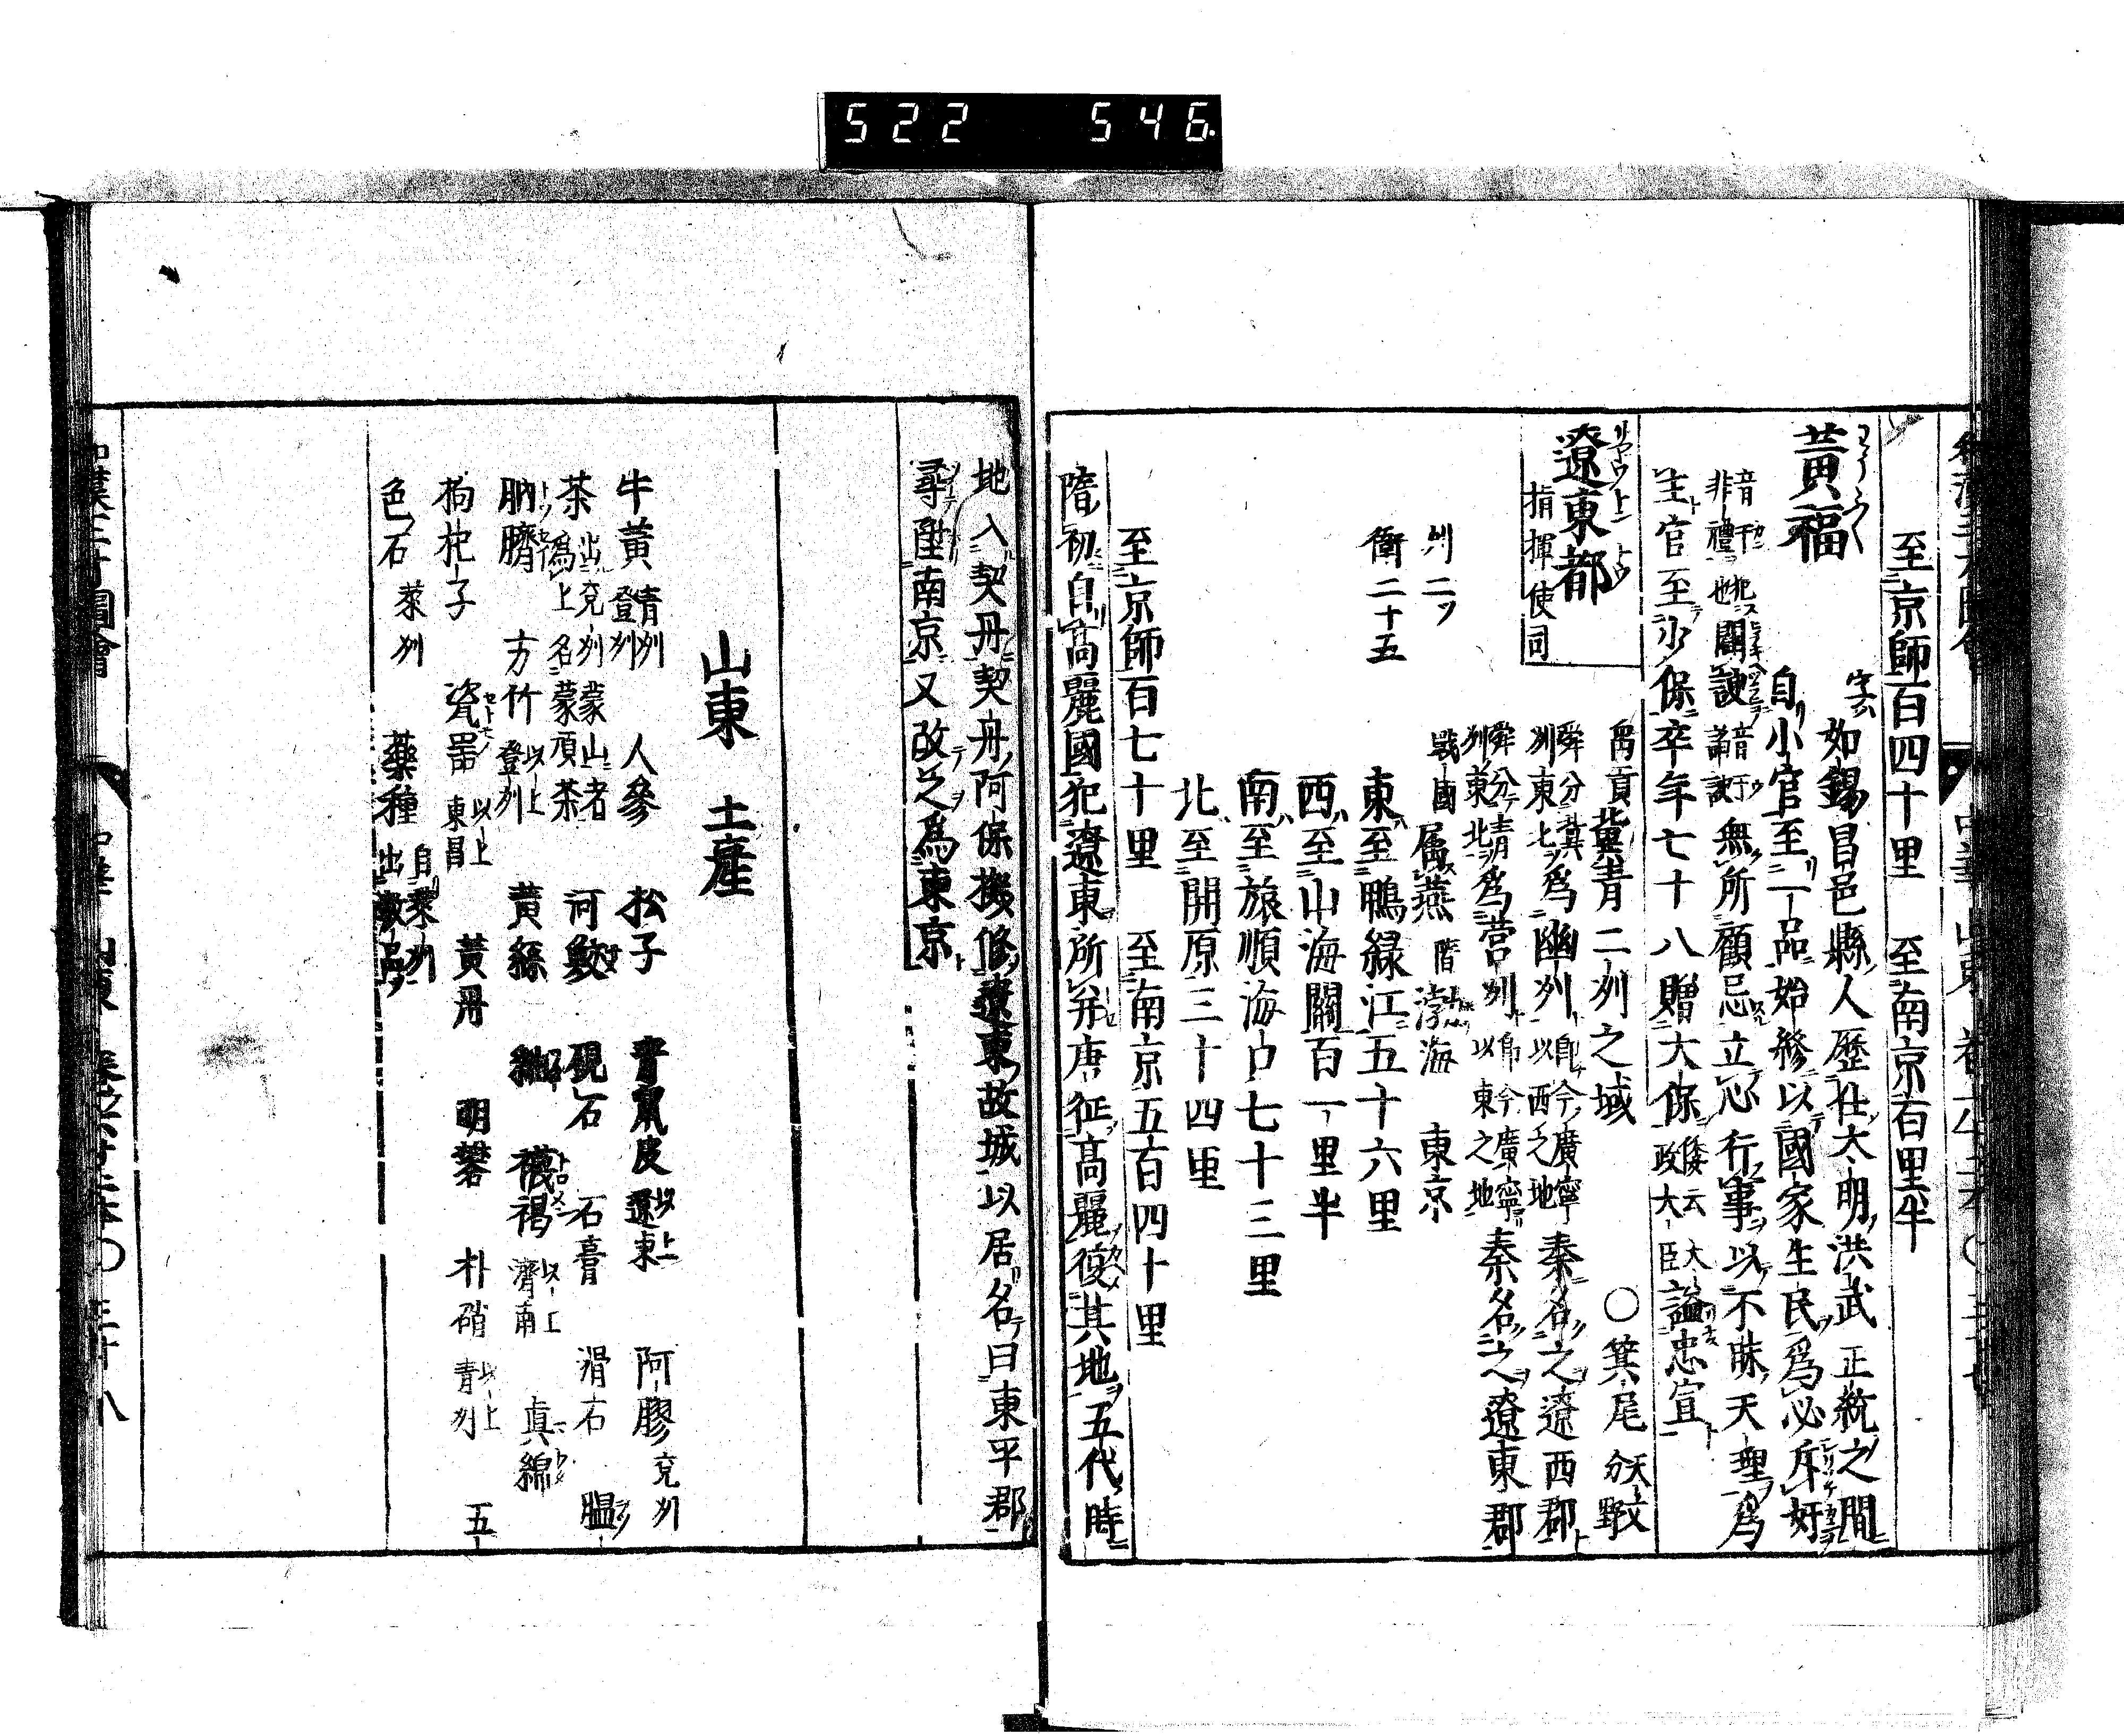 522 546
至京師百四十里 至南京百里半
黃福 字云如錫昌邑縣人歷仕大明洪武正統之間
自小官至一品始終以國家生民爲必斥奸
非禮也 音干犯 闢諛 音于諂諛 無所顧忌立心行事以不昧天理爲
主官至少保卒年七十八贈大保 倭云大政大臣 諡忠宣
遼東都指揮使司
禹貢冀青二州之域 ○箕尾 天文分野
舜分冀州東北爲幽州 卽今廣寧以西之地 秦名之遼西郡
舜分青州東北爲營州 卽今廣寧以東之地 秦名之遼東郡
州二ツ 戰國屬燕 隋渤海 東京
衛二十五 東至鴨綠江五十六里
西至山海關百一里半
南至旅順海口七十三里
北至開原三十四里
至京師百七十里 至南京五百四十里
隋初自高麗國犯遼東所并唐征高麗復其地五代時
地入契丹契丹阿保機修遼東故城以居名曰東平郡
尋陞南京又改之爲東京
山東 土產
牛黃 青州登州 人參 松子 青鼠皮 以上遼東 阿膠 兗州
茶 出兗州蒙山者爲上名蒙頂茶 河鮫 硯石 石膏 滑石 膃
肭臍 方竹 以上登州 黃絲 紬 襪褐 以上濟南 真綿
枸杞子 瓷器 以上東昌 黃丹 明礬 朴硝 以上青州 五
色石 萊州 藥種 自萊州出數品
和漢三才圖會 中華 山東 卷之六十二本○三十八